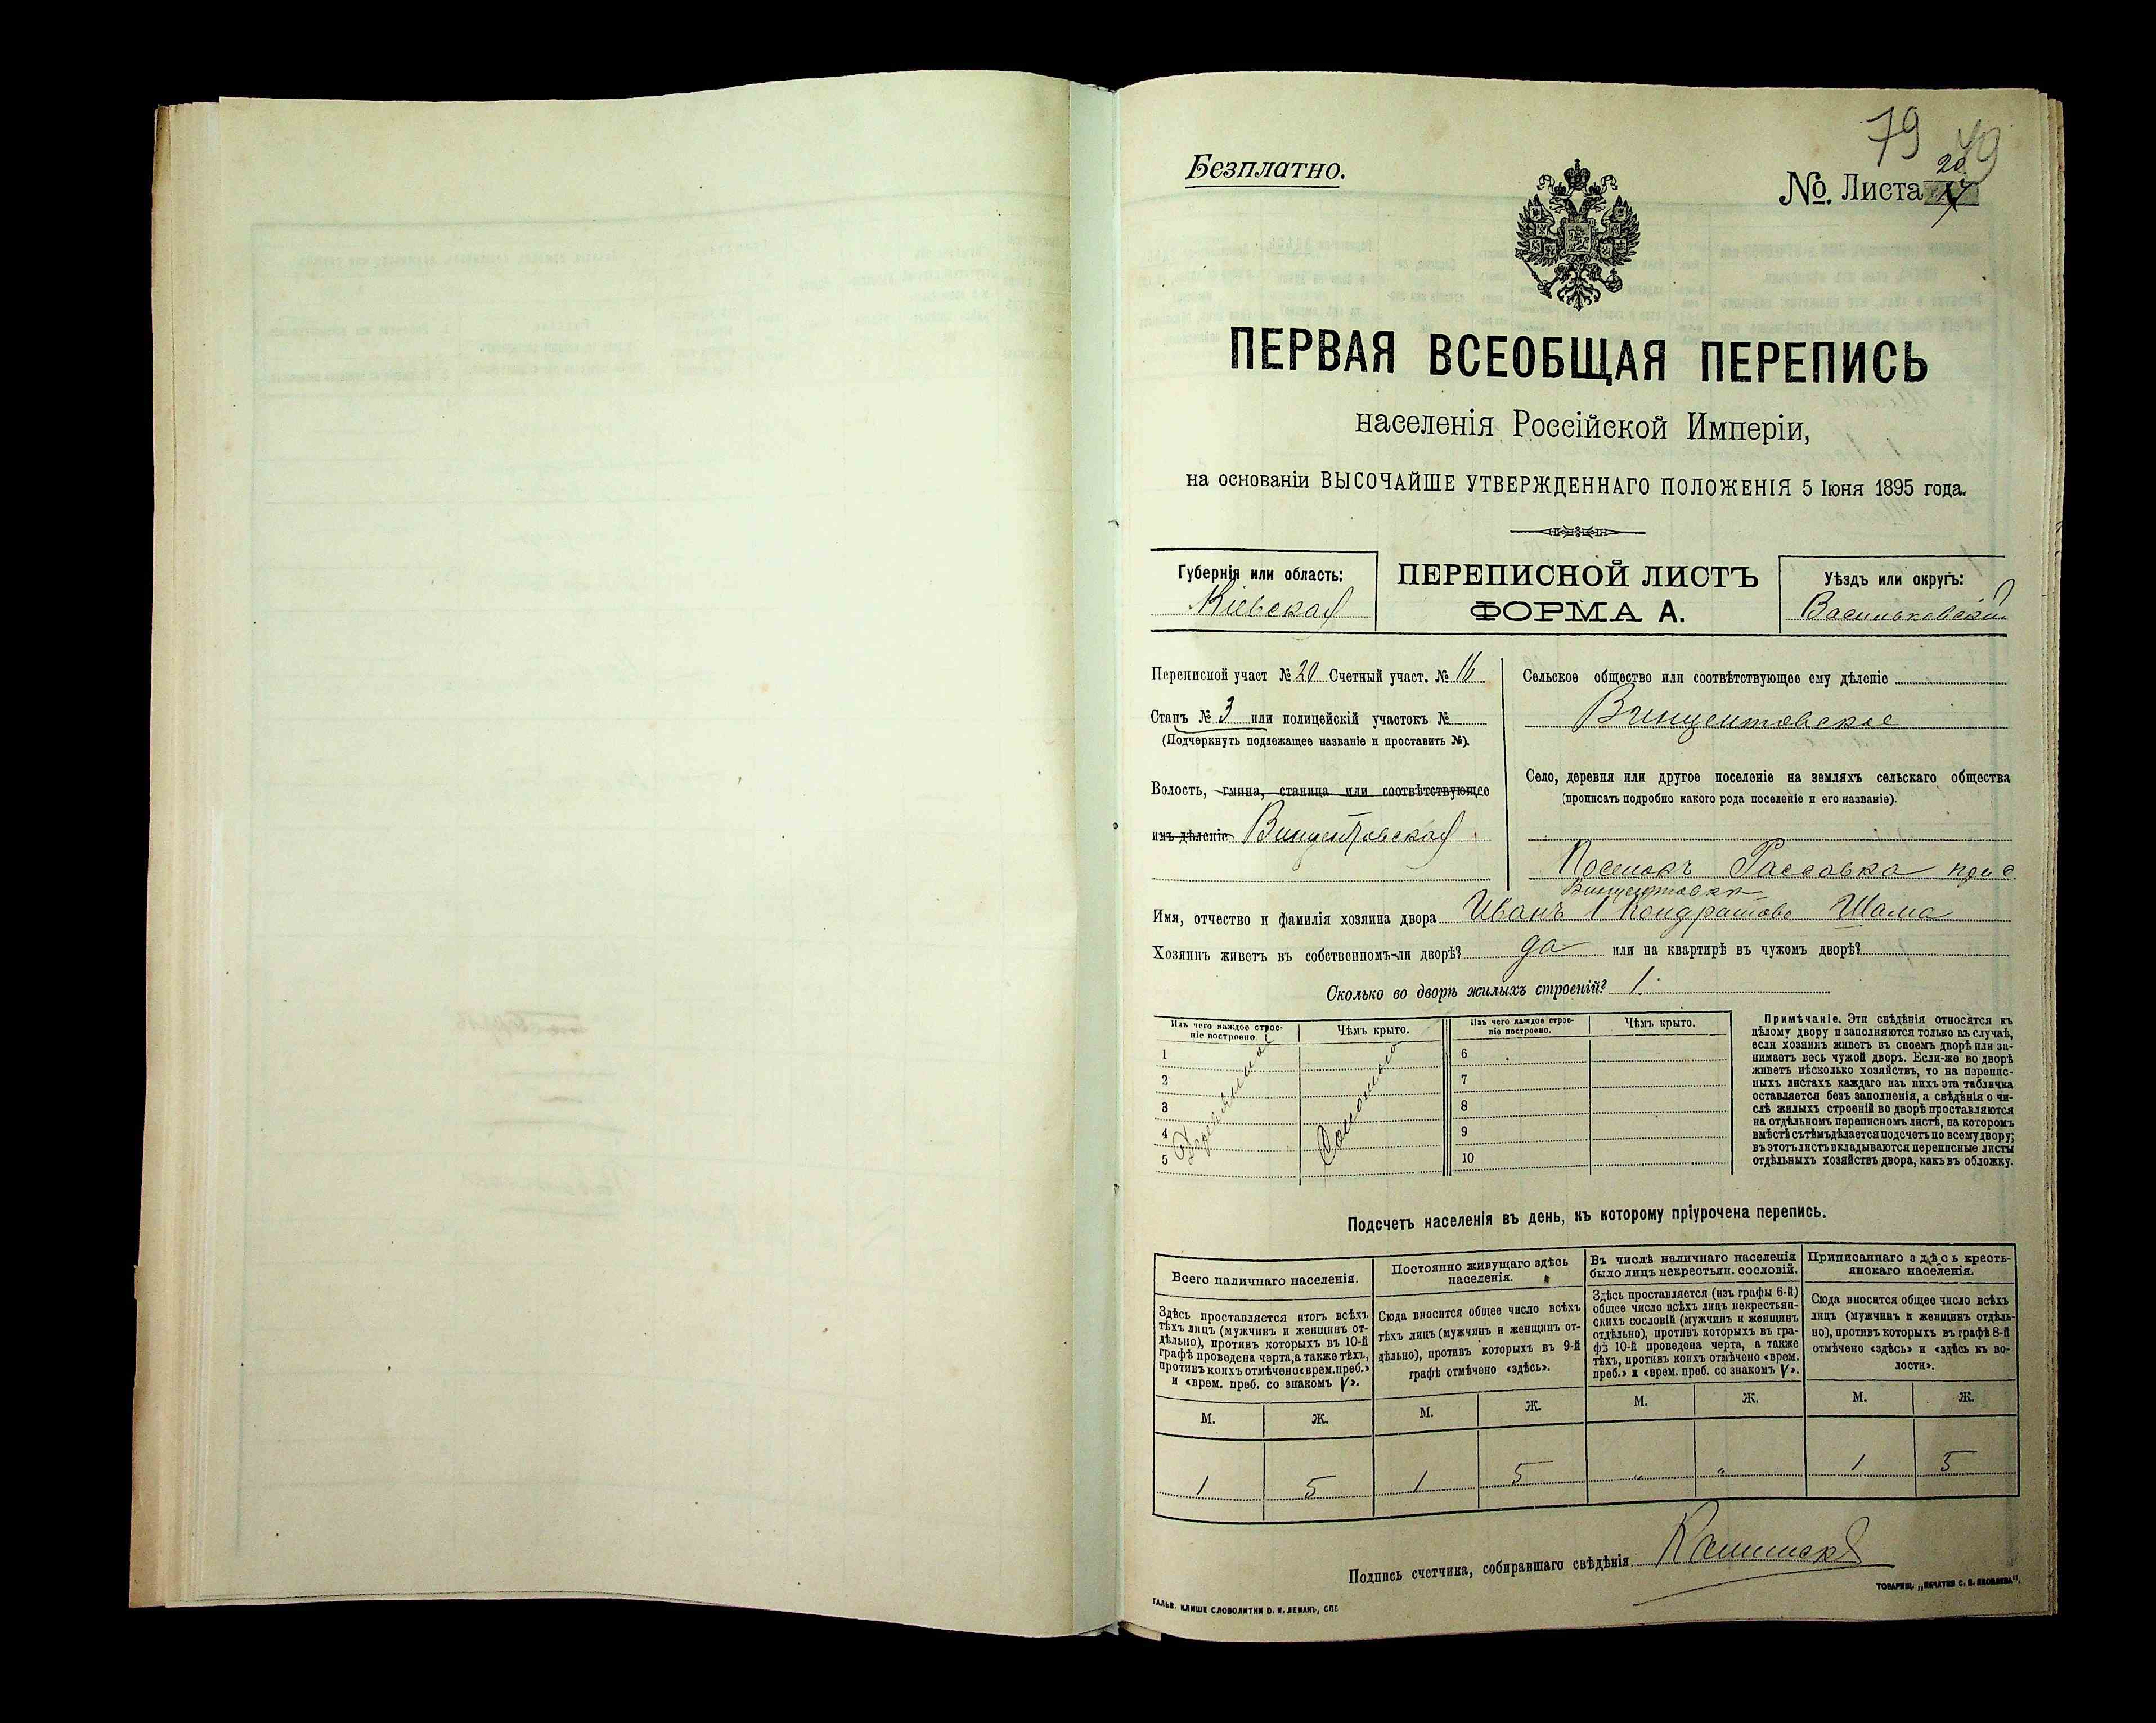 79
Безплатно.
№. Листа 20
ПЕРВАЯ ВСЕОБЩАЯ ПЕРЕПИСЬ
населенія Россійской Имперіи,
на основаніи ВЫСОЧАЙШЕ УТВЕРЖДЕННАГО ПОЛОЖЕНІЯ 5 Іюня 1895 года.
Губернія или область:
Кіевская
ПЕРЕПИСНОЙ ЛИСТЪ
ФОРМА А.
Уѣздъ или округъ:
Васильковскій
Переписной участ № 20 Счетный участ. №
Станъ № 3 или полицейскій участокъ №
(Подчеркнуть подлежащее названіе и проставить №).
Волость, гмина, станица или соотвѣтствующее
имъ дѣленіе Винцентовская
Сельское общество или соотвѣтствующее ему дѣленіе
Винцентовское
Село, деревня или другое поселеніе на земляхъ сельскаго общества
(прописать подробно какого рода поселеніе и его названіе).
Поселокъ Рассовка при с.
Винцентовкѣ
Имя, отчество и фамилія хозяина двора Иванъ 1 Кондратовъ Шама
Хозяинъ живетъ въ собственномъ-ли дворѣ? да или на квартирѣ въ чужомъ дворѣ?
Сколько во дворѣ жилыхъ строеній? 1.
Изъ чего каждое строе-
ніе построено.
Чѣмъ крыто.
Изъ чего каждое строе-
ніе построено.
Чѣмъ крыто.
1
2
3
4
5
Деревянное
Соломою
6
7
8
9
10
Примѣчаніе. Эти свѣдѣнія относятся къ
цѣлому двору и заполняются только въ случаѣ,
если хозяинъ живетъ въ своемъ дворѣ или за-
нимаетъ весь чужой дворъ. Если-же во дворѣ
живетъ нѣсколько хозяйствъ, то на перепис-
ныхъ листахъ каждаго изъ нихъ эта табличка
оставляется безъ заполненія, а свѣдѣнія о чи-
слѣ жилыхъ строеній во дворѣ проставляются
на отдѣльномъ переписномъ листѣ, на которомъ
вмѣстѣ съ тѣмъ дѣлается подсчетъ по всему двору;
въ этотъ листъ вкладываются переписные листы
отдѣльныхъ хозяйствъ двора, какъ въ обложку.
Подсчетъ населенія въ день, къ которому пріурочена перепись.
Всего наличнаго населенія.
Здѣсь проставляется итогъ всѣхъ
тѣхъ лицъ (мужчинъ и женщинъ от-
дѣльно), противъ которыхъ въ 10-й
графѣ проведена черта, а также тѣхъ,
противъ коихъ отмѣчено «врем. преб.»
и «врем. преб. со знакомъ V».
Постоянно живущаго здѣсь
населенія.
Сюда вносится общее число всѣхъ
тѣхъ лицъ (мужчинъ и женщинъ от-
дѣльно), противъ которыхъ въ 9-й
графѣ отмѣчено «здѣсь».
Въ числѣ наличнаго населенія
было лицъ некрестьян. сословій.
Здѣсь проставляется (изъ графы 6-й)
общее число всѣхъ лицъ некрестьян-
скихъ сословій (мужчинъ и женщинъ
отдѣльно), противъ которыхъ въ гра-
фѣ 10-й проведена черта, а также
тѣхъ, противъ коихъ отмѣчено «врем.
преб.» и «врем. преб. со знакомъ V».
Приписаннаго здѣсь кресть-
янскаго населенія.
Сюда вносится общее число всѣхъ
лицъ (мужчинъ и женщинъ отдѣль-
но), противъ которыхъ въ графѣ 8-й
отмѣчено «здѣсь» и «здѣсь къ во-
лости».
М. Ж. М. Ж. М. Ж. М. Ж.
1 5 1 5 " " 1 5
Подпись счетчика, собиравшаго свѣдѣнія
ГАЛЬВ. КЛИШЕ СЛОВОЛИТНИ О. И. ЛЕМАНЪ, СПБ
ТОВАРИЩ. „ПЕЧАТНЯ С. П. ЯКОВЛЕВА“,